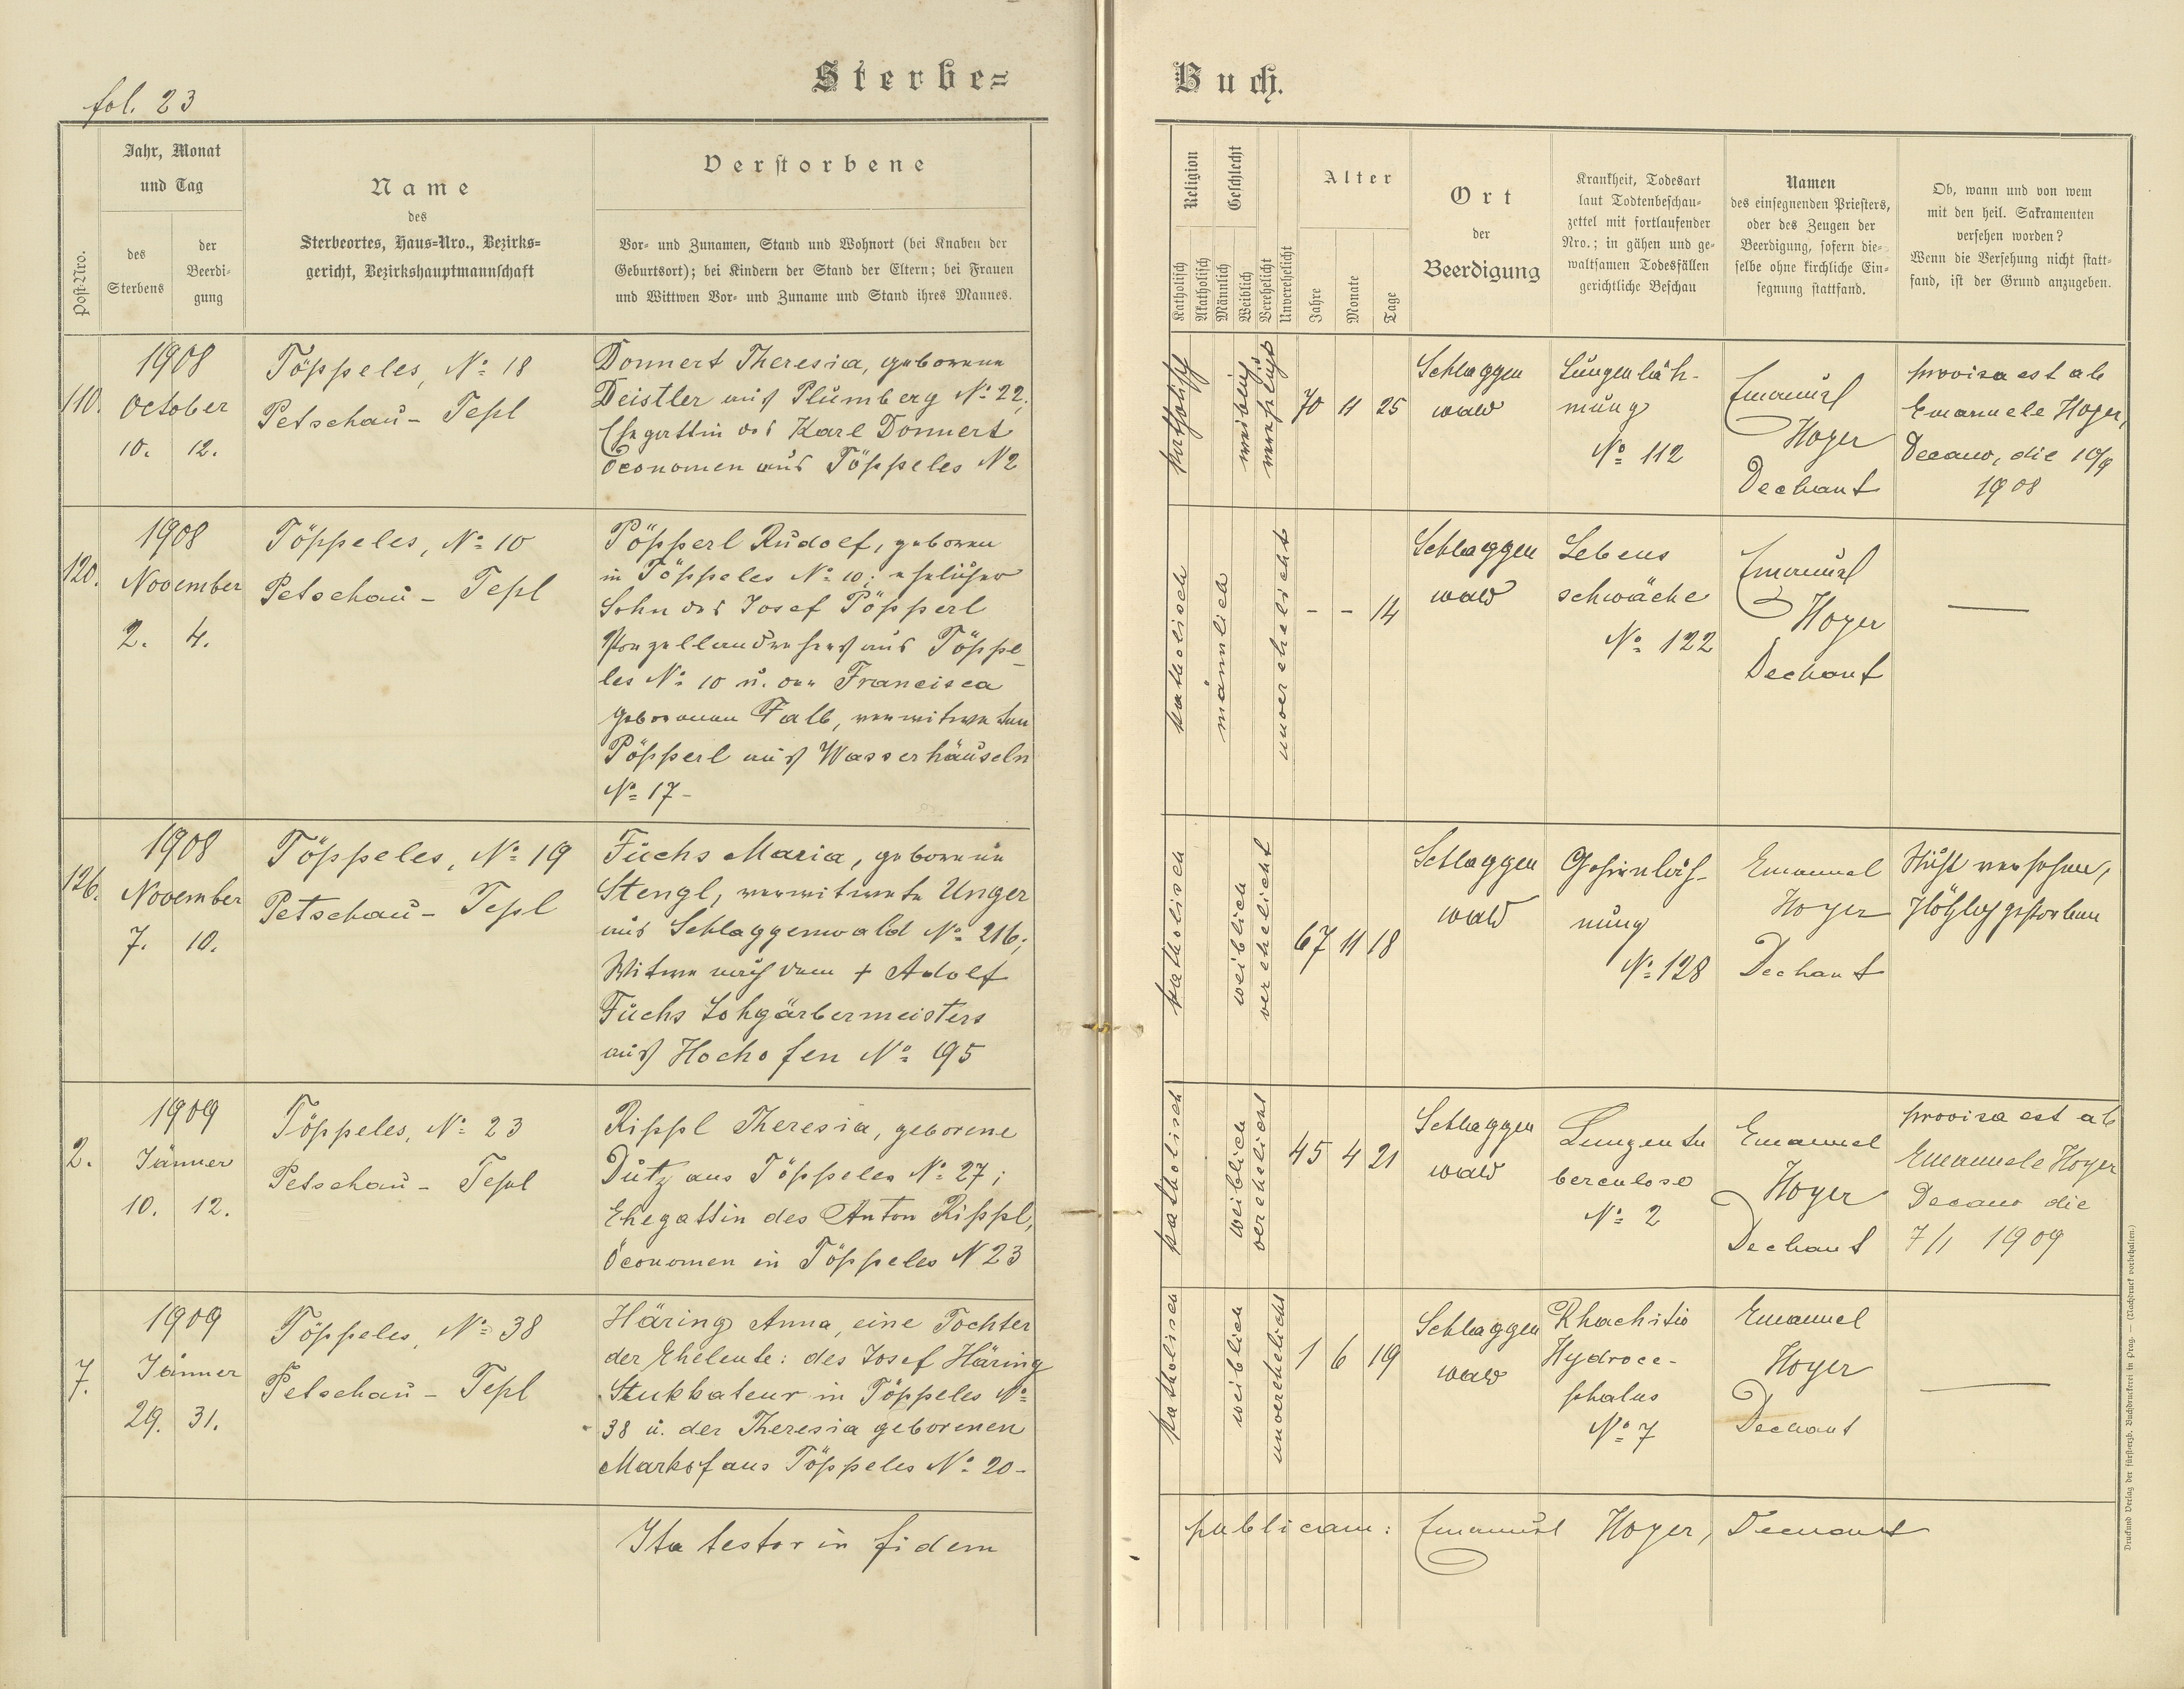 fol. 23
Sterbe=
Jahr, Monat
und Tag
Post-Nro.
des
Sterbens
der
Beerdi-
gung
Name
des
Sterbeortes, Haus=Nro., Bezirks=
gericht, Bezirkshauptmannschaft
Verstorbene
Vor- und Zunamen, Stand und Wohnort (bei Knaben der
Geburtsort); bei Kindern der Stand der Eltern; bei Frauen
und Wittwen Vor- und Zuname und Stand ihres Mannes.
110.
1908
October
10. 12.
Töppeles, No 18
Petschau - Tepl
Donnert Theresia, geborene
Deistler aus Plumberg No 22;
Ehegattin des Karl Donnert
Öconomen aus Töppeles N 2
120.
1908
November
2. 4.
Töppeles, No 10
Petschau - Tepl
Pöpperl Rudolf, geboren
in Töppeles No 10; ehelicher
Sohn des Josef Pöpperl
Porzellandrehers aus Töppe-
les No 10 u. der Francisca
geborenen Falb, verwitweten
Pöpperl aus Wasserhäuseln
No 17 -
126.
1908
November
7. 10.
Töppeles, No 19
Petschau - Tepl
Fuchs Maria, geborene
Stengl, verwitwete Unger
aus Schlaggenwald No 216;
Witwe nach dem + Adolf
Fuchs Lohgärbermeisters
aus Hochofen No 195
2.
1909
Jänner
10. 12.
Töppeles, No 23
Petschau - Tepl
Rippl Theresia, geborene
Dutz aus Töppeles No 27;
Ehegattin des Anton Rippl,
Öconomen in Töppeles N 23
7.
1909
Jänner
29. 31.
Töppeles, No 38
Petschau - Tepl
Häring Anna, eine Tochter
der Eheleute: des Josef Häring
Stukkateur in Töppeles No
38 u. der Theresia geborenen
Markof aus Töppeles No 20 -
Ita testor in fidem
Buch.
Religion
Katholisch
Akatholisch
Geschlecht
Männlich
Weiblich
Verehelicht
Unverehelicht
Alter
Jahre
Monate
Tage
Ort
der
Beerdigung
Krankheit, Todesart
laut Todtenbeschau-
zettel mit fortlaufender
Nro.; in gähen und ge-
waltsamen Todesfällen
gerichtliche Beschau
Namen
des einsegnenden Priesters,
oder des Zeugen der
Beerdigung, sofern die-
selbe ohne kirchliche Ein-
segnung stattfand.
Ob, wann und von wem
mit den heil. Sakramenten
versehen worden?
Wenn die Versehung nicht statt-
fand, ist der Grund anzugeben.
katholisch
weiblich
verehelicht
70 11 25
Schlaggen
wald
Lungenläh-
mung
No 112
Emanuel
Hoyer
Dechant
provisa est ab
Emanuele Hoyer,
Decano, die 10/9
1908
katholisch
männlich
unverehelicht
- - 14
Schlaggen
wald
Lebens
schwäche
No 122
Emanuel
Hoyer
Dechant
katholisch
weiblich
verehelicht
67 11 18
Schlaggen
wald
Gehirnläh-
mung
No 128
Emanuel
Hoyer
Dechant
Nicht versehen,
plötzlich gestorben
katholisch
weiblich
verehelicht
45 4 21
Schlaggen
wald
Lungentu
berculose
No 2
Emanuel
Hoyer
Dechant
provisa est ab
Emanuele Hoyer
Decano die
7/1 1909
katholisch
weiblich
unverehelicht
1 6 19
Schlaggen
wald
Rhachitis
Hydroce-
phalus
No 7
Emanuel
Hoyer
Dechant
publicam: Emanuel Hoyer, Dechant
Druck und Verlag der fürsterzb. Buchdruckerei in Prag. — (Nachdruck vorbehalten.)